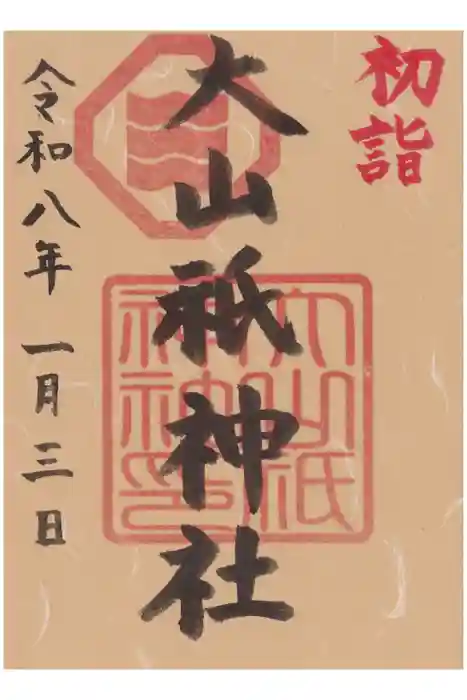 初詣
大山祇神社
大山祇神社神印
令和八年 一月三日